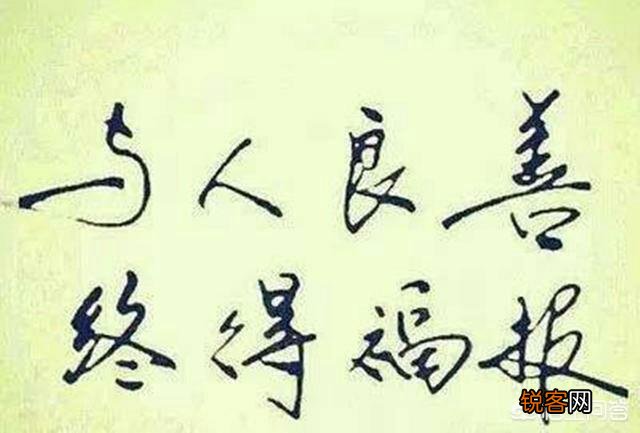 与人良善
终得福报
锐客网